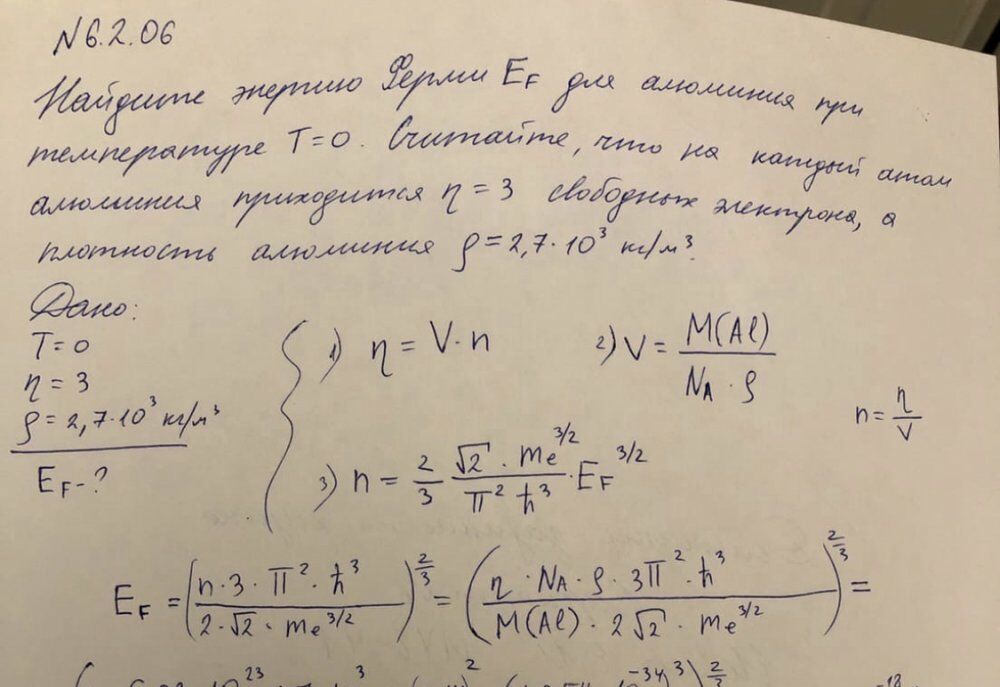 N 6.2.06
Найдите энергию Ферми E_F для алюминия при
температуре T=0. Считайте, что на каждый атом
алюминия приходится η = 3 свободных электрона, а
плотность алюминия ρ = 2,7·10³ кг/м³.
Дано:
T = 0
η = 3
ρ = 2,7·10³ кг/м³
E_F - ?
1) η = V·n
2) V = M(Al) / (N_A · ρ)
n = η/V
3) n = 2/3 · (√2 · m_e^(3/2)) / (π² ħ³) · E_F^(3/2)
E_F = ((n·3·π²·ħ³) / (2·√2·m_e^(3/2)))^(2/3) = ((η·N_A·ρ·3π²·ħ³) / (M(Al)·2√2·m_e^(3/2)))^(2/3) =